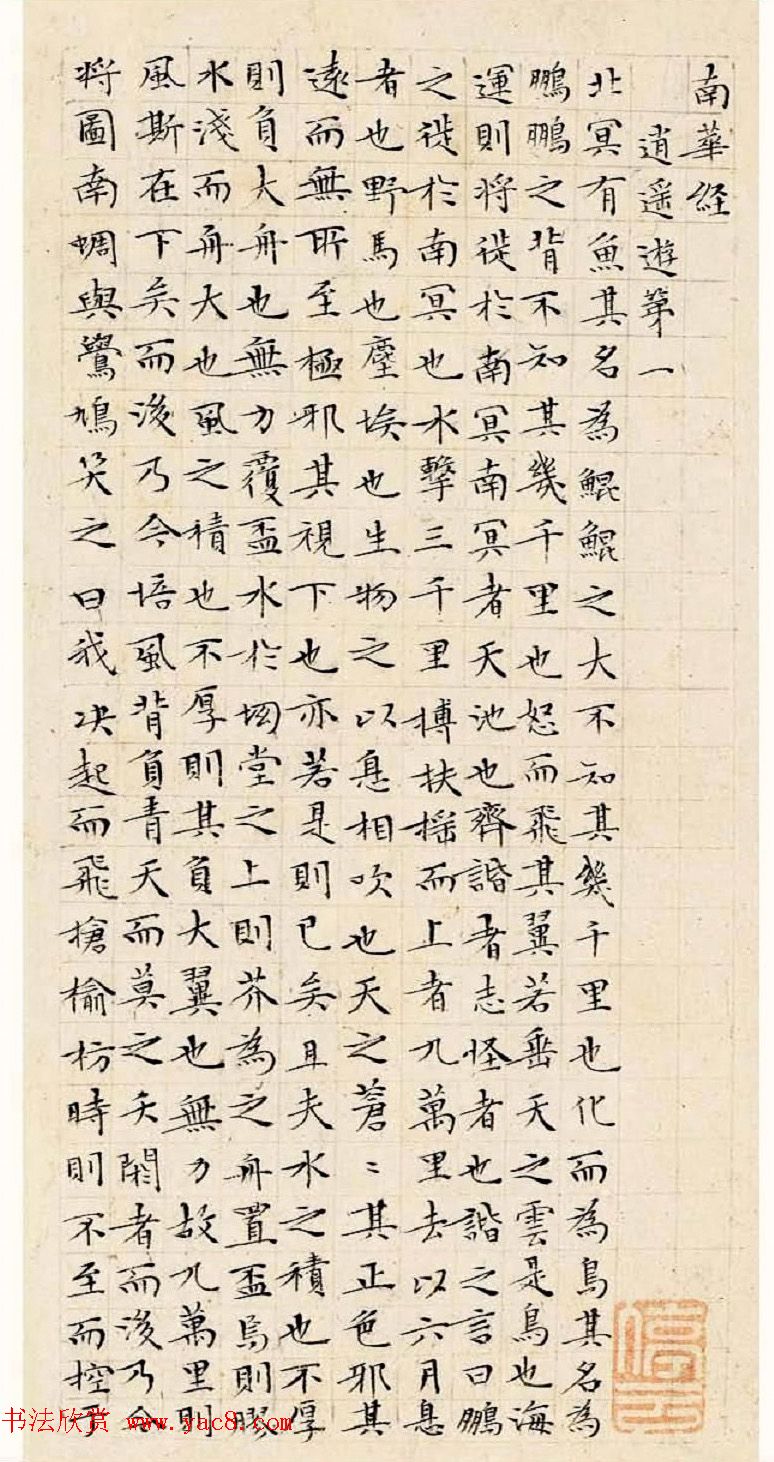 南華經
逍遥遊第一
北冥有魚其名為鯤鯤之大不知其幾千里也化而為鳥其名為
鵬鵬之背不知其幾千里也怒而飛其翼若垂天之雲是鳥也海
運則将徙於南冥南冥者天池也齊諧者志怪者也諧之言曰鵬
之徙於南冥也水擊三千里摶扶摇而上者九萬里去以六月息
者也野馬也塵埃也生物之以息相吹也天之蒼〻其正色邪其
遠而無所至極邪其視下也亦若是則已矣且夫水之積也不厚
則負大舟也無力覆盃水於坳堂之上則芥為之舟置盃焉則膠
水淺而舟大也風之積也不厚則其負大翼也無力故九萬里則
風斯在下矣而後乃今培風背負青天而莫之夭閼者而後乃今
将圖南蜩與鷽鳩笑之曰我决起而飛搶榆枋時則不至而控於
书法欣赏 www.yac8.com